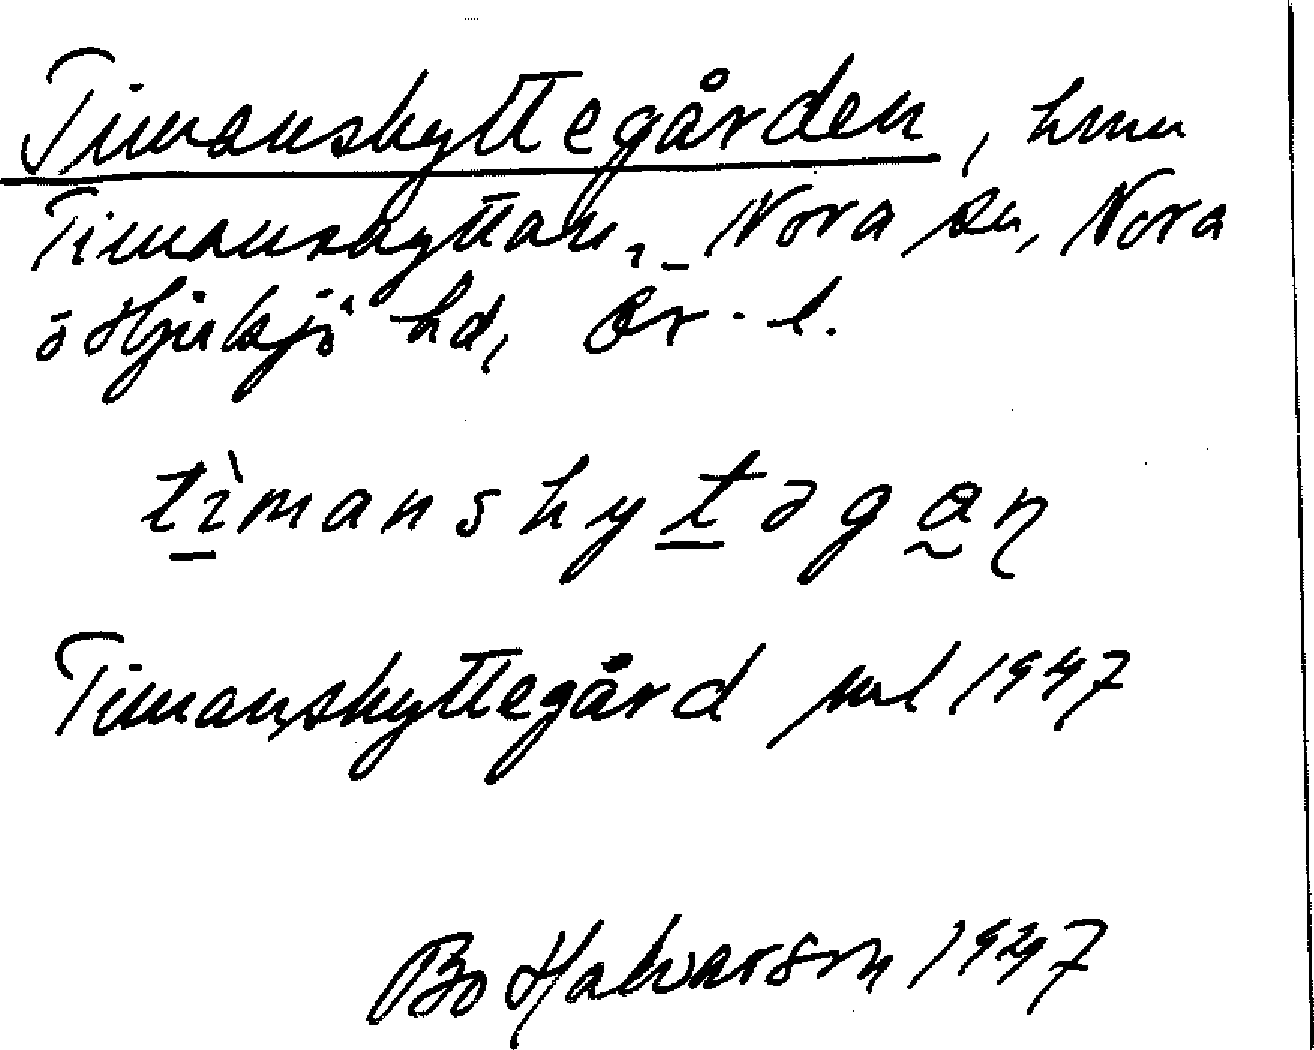 Timanshyttegården, hmn
Timanshyttan, Nora sn, Nora
o Hjulsjö hd, Ör. l.
tìmanshytəgaɳ
Timanshyttegård ml 1947
Bo Halvarson 1947